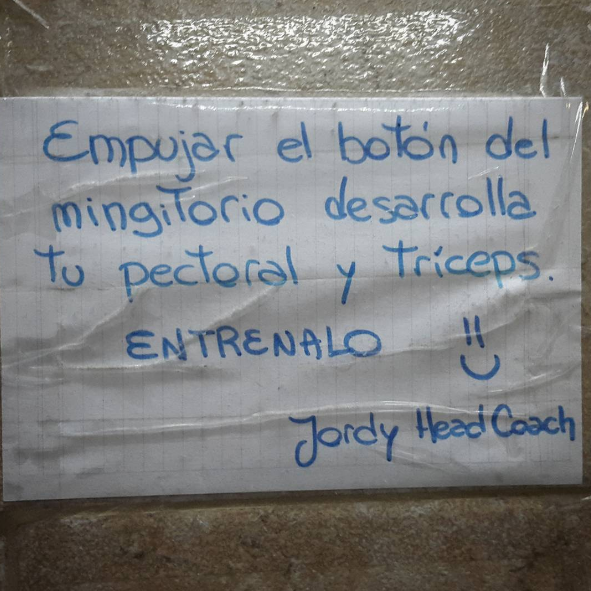 Empujar el botón del
mingitorio desarrolla
tu pectoral y tríceps.
ENTRENALO
Jordy Head Coach